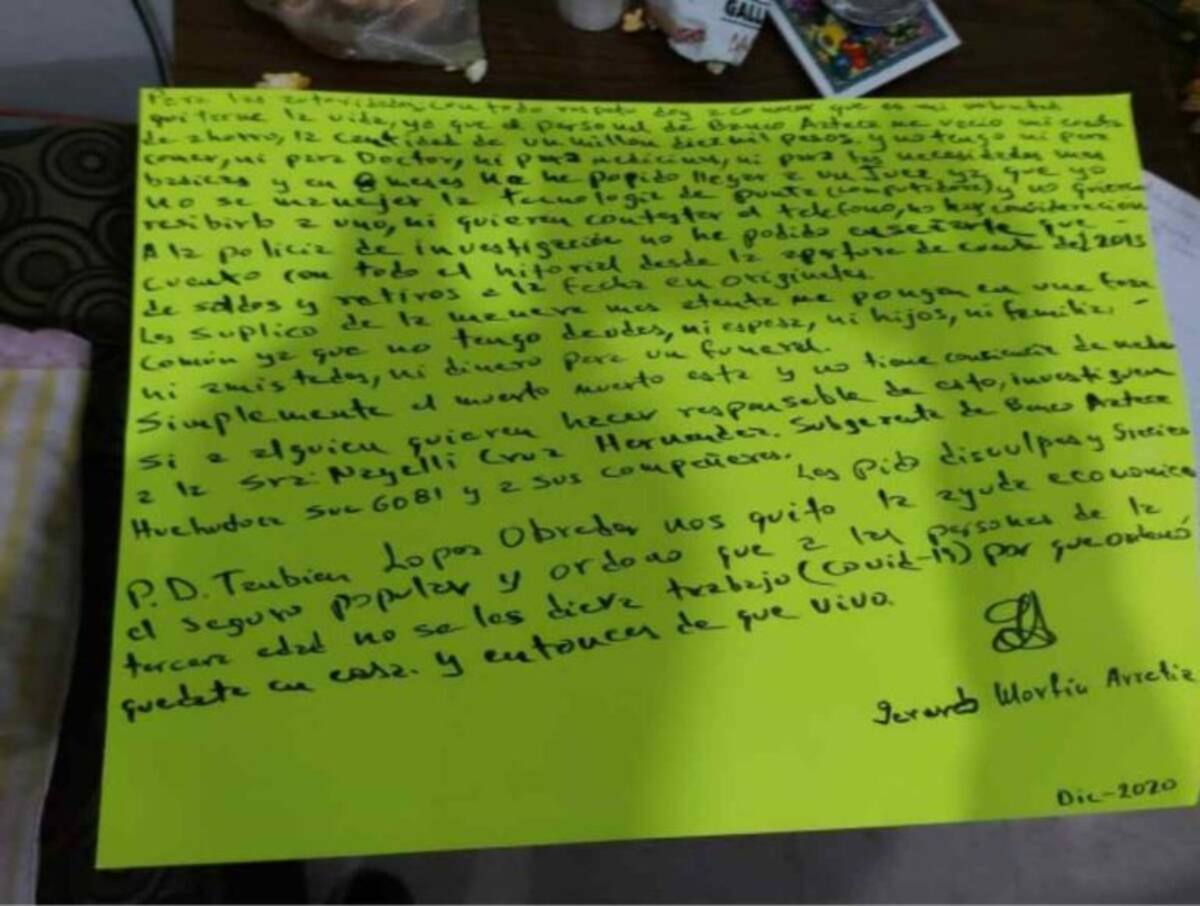 GALL
Para las autoridades, con todo respeto doy a conocer que es mi voluntad
quitarme la vida, ya que el personal de Banco Azteca me vacio mi cuenta
de ahorro, la cantidad de un millon diez mil pesos. y no tengo ni para
comer, ni para Doctor, ni para medicinas, ni para las necesidades mas
basicas y en 8 meses no he podido llegar a un Juez ya que yo
no se manejar la tecnologia de punta (computadora) y no quieren
resibirlo a uno, ni quieren contestar el telefono, no hay consideracion
A la policia de investigación no he podido enseñarle que -
cuento con todo el hitorial desde la apertura de cuenta del 2015
de saldos y retiros a la fecha en originales.
Les suplico de la manera mas atenta me pongan en una fosa
común ya que no tengo deudas, ni esposa, ni hijos, ni familia, -
ni amistades, ni dinero para un funeral.
Simplemente el muerto muerto esta y no tiene conciencia de nada
Si a alguien quieren hacer responsable de esto, investiguen
a la Sra: Nayelli Cruz Hernandez. Subgerente de Banco Azteca
Huehuetoca Suc 6081 y a sus compañeros.
Les pido disculpas y
P.D. Tanbien Lopez Obrador nos quito la ayuda economica
el seguro popular y ordeno que a las personas de la
tercera edad no se les diera trabajo (Covid-19) por que ordenó
quedate en casa. y entonces de que vivo.
Gerardo Morfin Arretia
Dic-2020